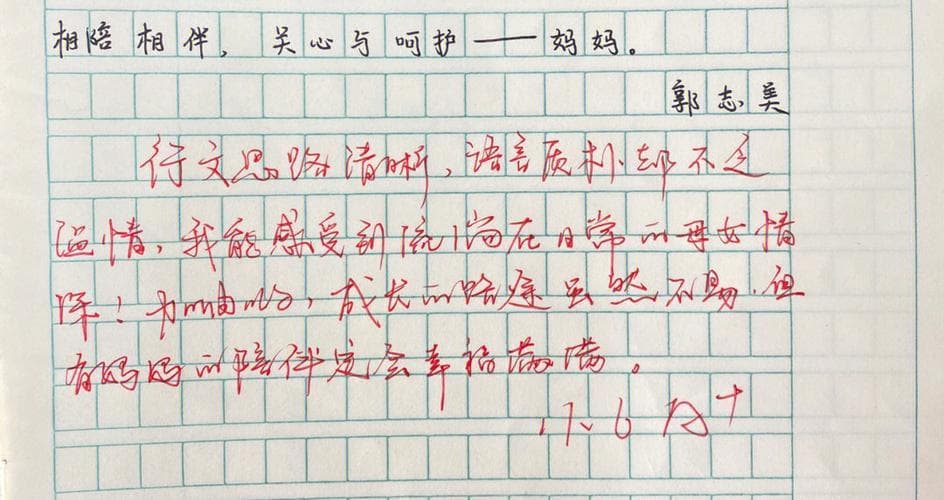 相陪相伴，关心与呵护——妈妈。
郭志美
行文思路清晰，语言质朴却不乏
温情，我能感受到流淌在日常的母女情
深！，成长的路途虽然不易，但
有妈妈的陪伴定会幸福满满。
17.6 A+